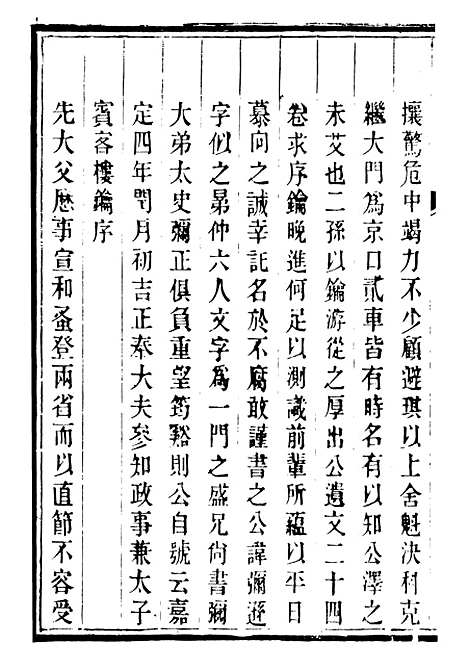 攘驚危中竭力不少顧避琪以上舍魁決科克
繼大門爲京口貳車皆有時名有以知公澤之
未艾也二孫以鑰游從之厚出公遺文二十四
卷求序鑰晚進何足以測識前輩所蘊以平日
慕向之誠幸託名於不腐敢謹書之公諱彌遜
字似之昴仲六人文字爲一門之盛兄尚書彌
大弟太史彌正俱負重望筠谿則公自號云嘉
定四年閏月初吉正奉大夫參知政事兼太子
賓客樓鑰序
先大父歷事宣和蚤登兩省而以直節不容受